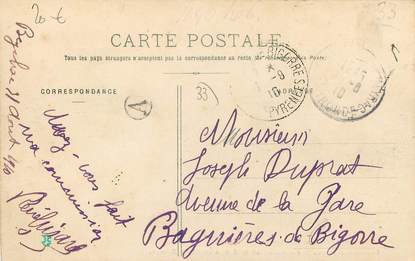 20 €
33
CARTE POSTALE
Tous les pays étrangers n'acceptent pas la correspondance au recto
CORRESPONDANCE
A
33
BIGORRE
PYRENEES
31 Août
Avez-vous fait
ma commission
Monsieur
Joseph Duprat
Avenue de la Gare
Bagnères-de-Bigorre